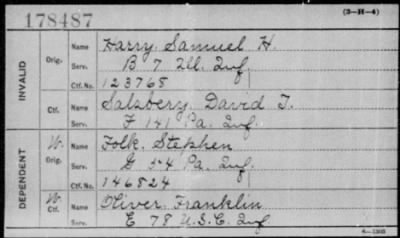 178487
(3-H-4)
INVALID
Orig.
Name Harry, Samuel H.
Serv. B. 7. Ill. Inf.
Ctf. No. 123765
Ctf.
Name Salsbery, David T.
Serv. F 141 Pa. Inf.
DEPENDENT
W. Orig.
Name Folk, Stephen
Serv. G 54 Pa. Inf.
Ctf. No. 146824
W. Ctf.
Name Oliver, Franklin
Serv. E 78 U.S.C. Inf